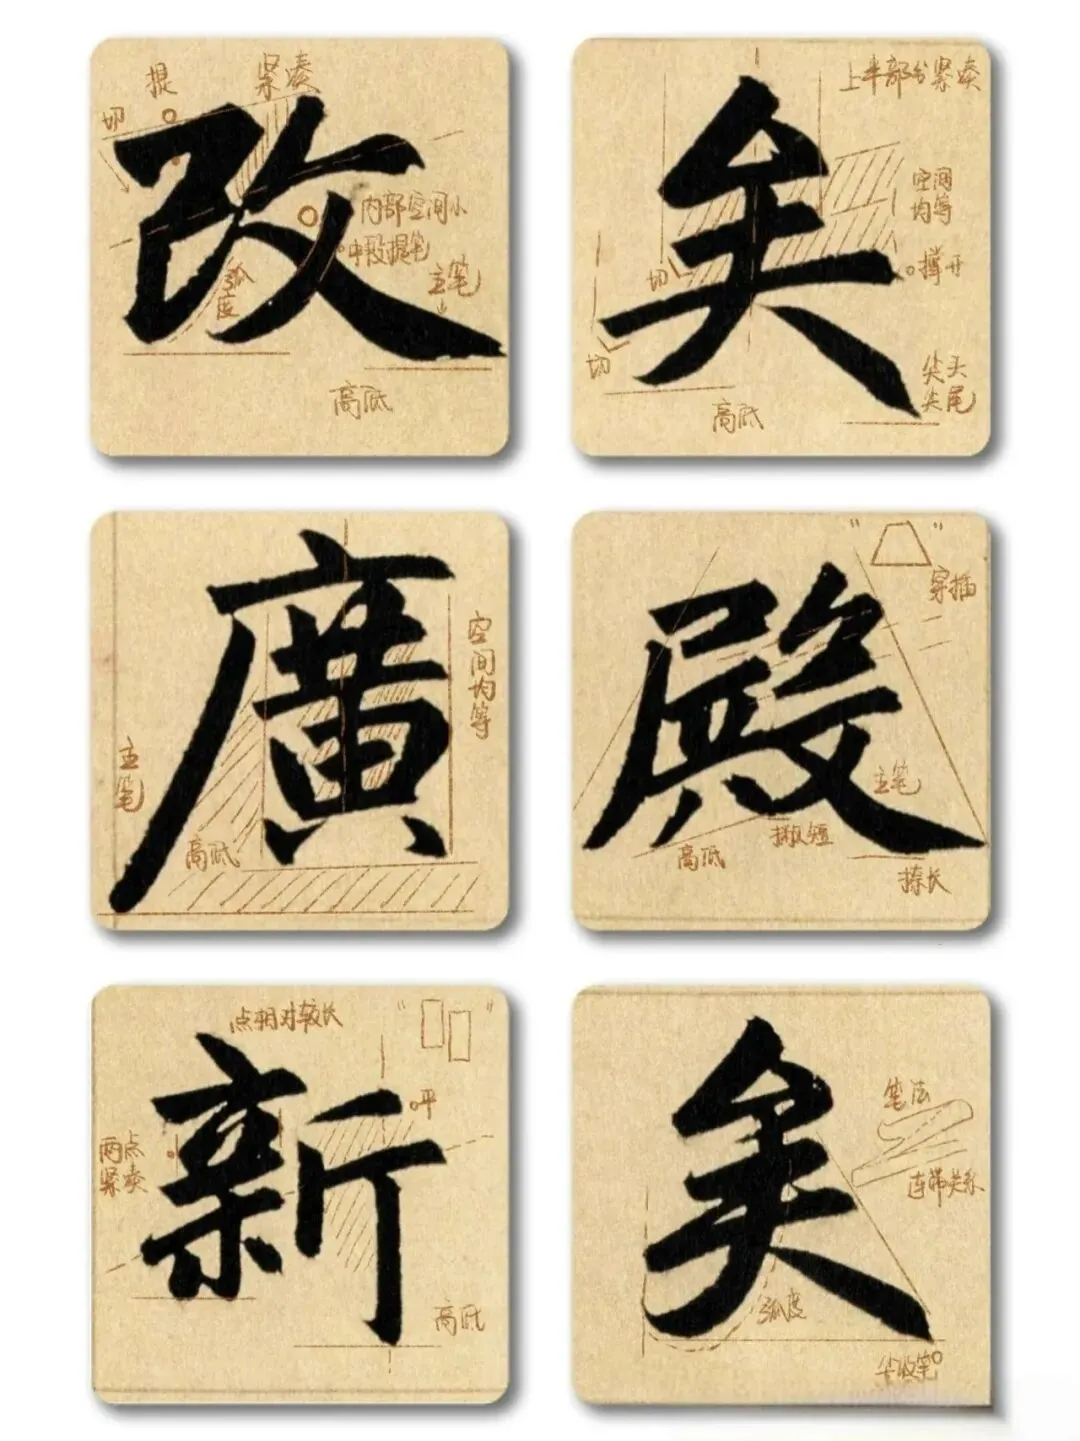 提
紧凑
切
改
内部空间小
中段提笔
弧度
主笔
高低
上半部分紧凑
矣
空间
均等
切
撑开
切
尖头
尖尾
高低
廣
空间均等
主笔
高低
殿
穿插
主笔
撇短
高低
捺长
点相对较长
新
平
两点
紧凑
高低
矣
笔法
连带关系
弧度
尖收笔